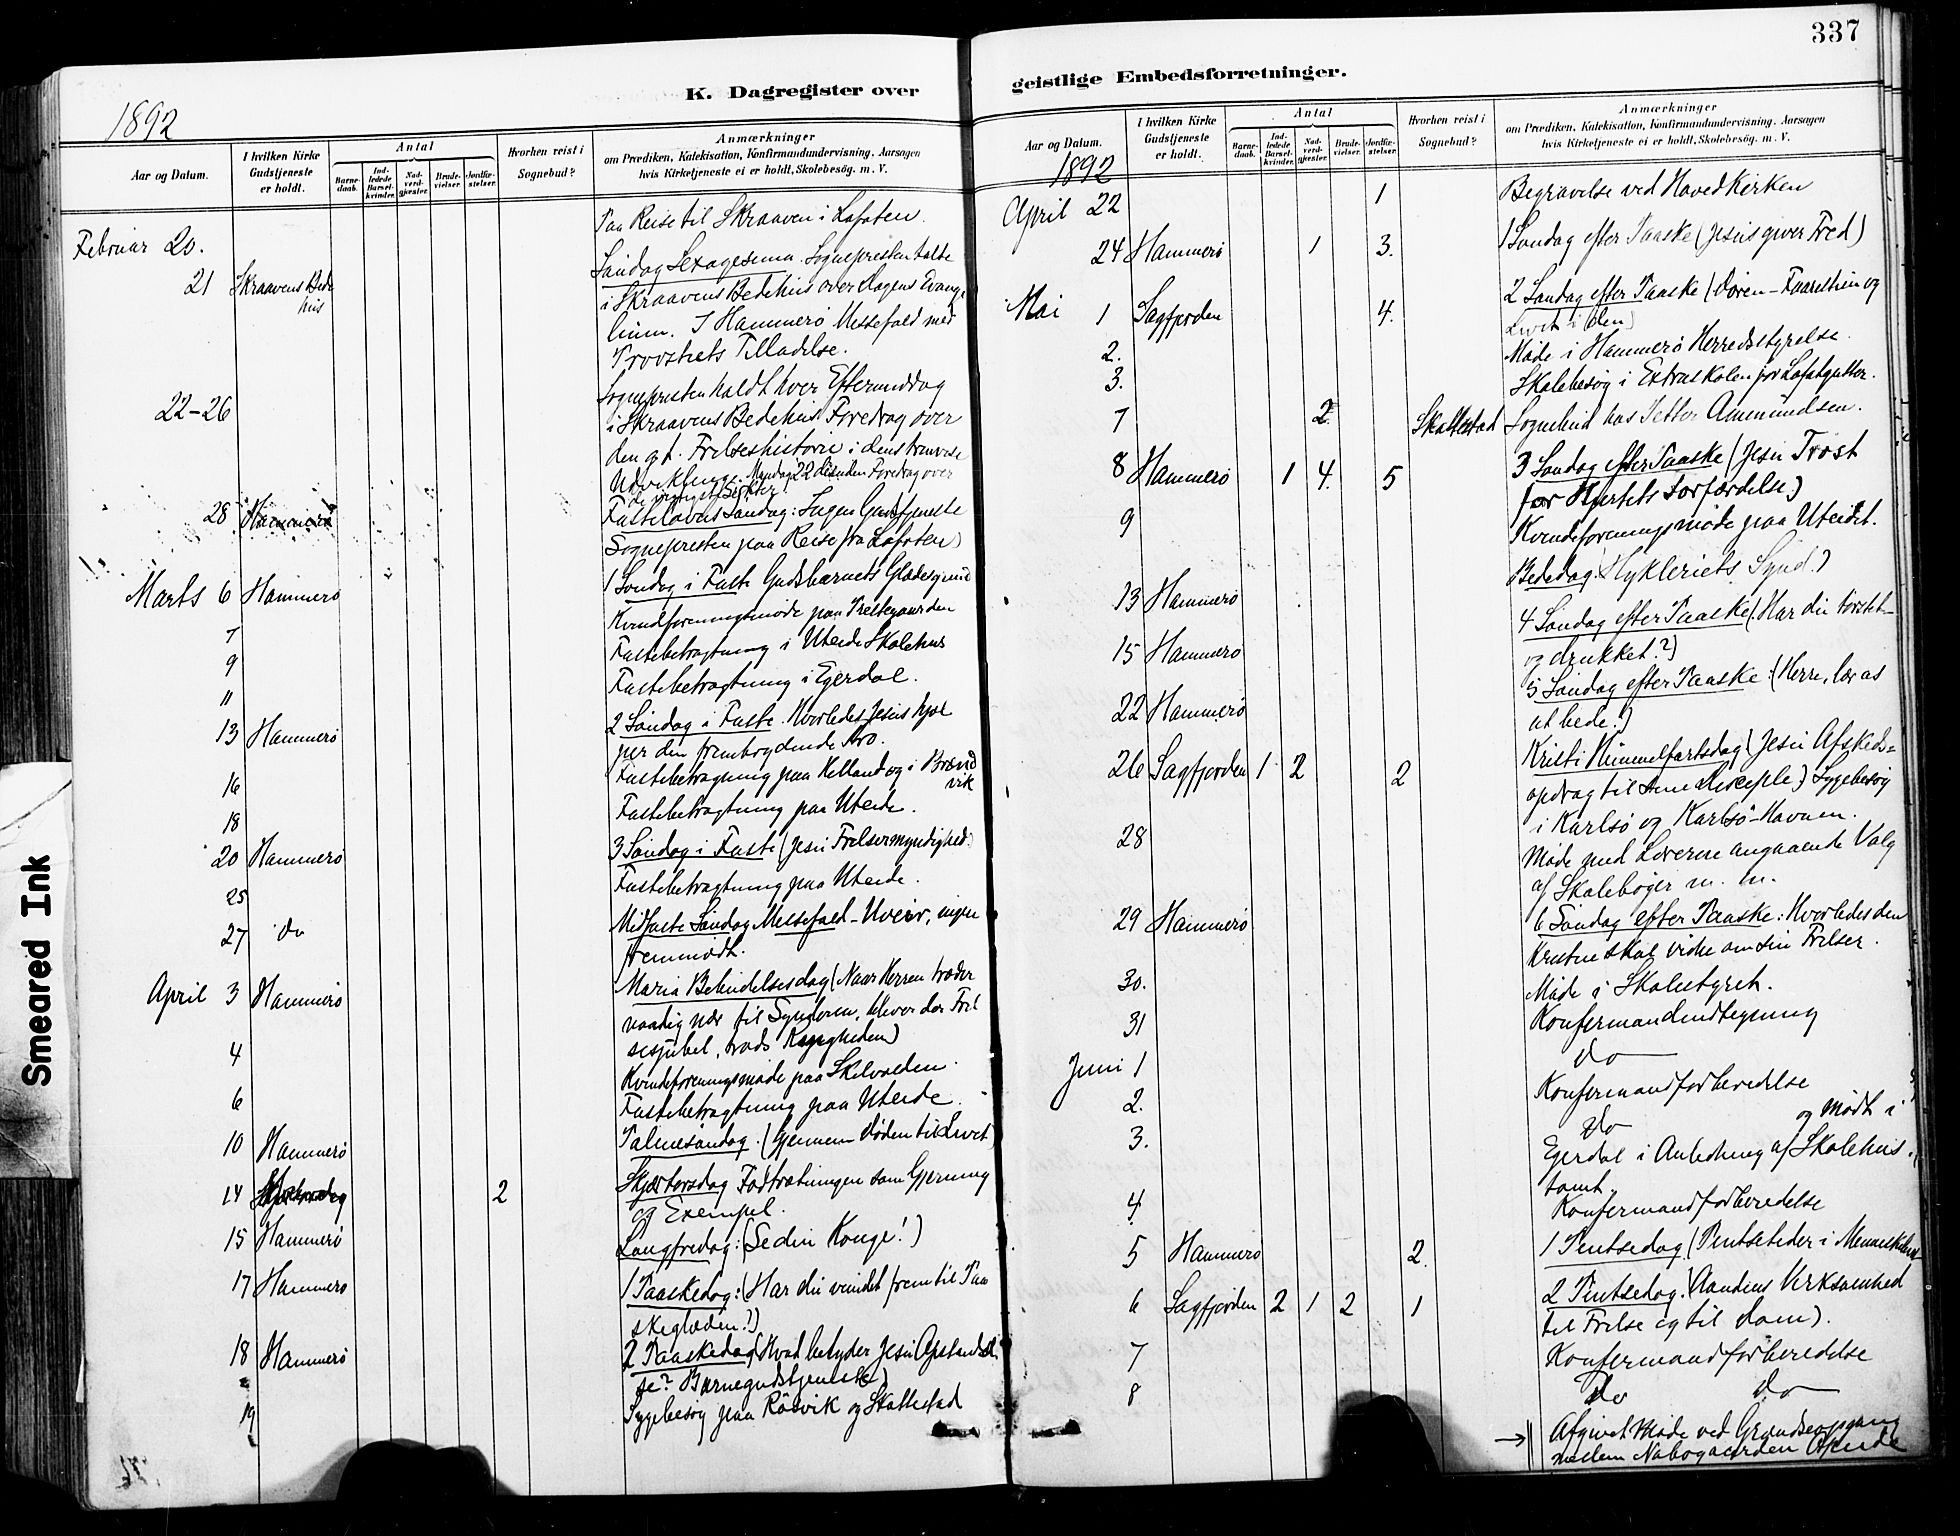 337
K. Dagregister over
geistlige Embedsforretninger.
1892
Aar og Datum.
I hvilken Kirke Gudstjeneste er holdt.
Antal
Barnedaab.
Indledede Barselkvinder.
Nadverdgjester.
Brudevielser.
Jordfæstelser.
Hvorhen reist i Sognebud?
Anmærkninger
om Prædiken, Katekisation, Konfirmandundervisning, Aarsagen
hvis Kirketjeneste ei er holdt, Skolebesøg. m. V.
Februar 20.
Paa Reise til Skraaven i Lofoten.
21 Skraavens Bede
hus
Søndag Sexagesema. Sognepresten talte
i Skraavens Bedehus over Dagens Evange
lium. I Hammerø Messefald med
Provstiets Tilladelse.
22-26
Sognepresten holdt hver Eftermiddag
i Skraavens Bedehus Foredrag over
den gt. Frelseshistorie i dens trinvise
Udvikling. Mandag 22 desuden Foredrag over
de vigtigste Sekter
28 Hammerø
Fastelavns Søndag: Ingen Gudstjeneste
Sognepresten paa Reise fra Lofoten)
Marts 6 Hammerø
1 Søndag i Faste Gudsbarnets Glædesgrund
7
Kvindforeningsmøde paa Prestegaarden
9
Fastebetragtning i Uteide Skolehus
11
Fastebetragtning i Egerdal.
13 Hammerø
2 Søndag i Faste. Hvorledes Jesus hjæl
per den frembrydende Tro.
16
Fastebetragtning paa Helland og i Brænd
vik
18
Fastebetragtning paa Uteide.
20 Hammerø
3 Søndag i Faste (Jesu Frelsermyndighed)
25
Fastebetragtning paa Uteide.
27 do
Midfaste Søndag Messefald - Uveir, ingen
fremmødt.
April 3 Hammerø
Maria Bebudelsesdag (Naar Herren træder
naadig nær til Synderen, bliver der Frel
sesjubel, trods
4
Kvindeforeningsmøde paa Skelvaeden.
6
Fastebetragtning paa Uteide.
10 Hammerø
Palmesøndag. (Gjennem Døden til Livet)
14
2
Skjærtorsdag Fodtvætningen som Gjerning
og Exempel.
15 Hammerø
Langfredag: (Se din Konge!)
17 Hammerø
1 Paaskedag: (Har du vundet frem til Paa
skeglæden?)
18 Hammerø
2 Paaskedag (Hvad betyder Jesu Opstandel
se? Børnegudstjeneste)
19
Sygebesøg paa Røsvik og Skottestad
Aar og Datum.
I hvilken Kirke Gudstjeneste er holdt.
Antal
Barnedaab.
Indledede Barselkvinder.
Nadverdgjester.
Brudevielser.
Jordfæstelser.
Hvorhen reist i Sognebud?
Anmærkninger
om Prædiken, Katekisation, Konfirmandundervisning, Aarsagen
hvis Kirketjeneste ei er holdt, Skolebesøg. m. V.
1892
April 22 1 Begravelse ved Hovedkirken
24 Hammerø 1 3. 1 Søndag efter Paaske (Jesus giver Fred)
Mai 1 Sagfjorden 4. 2 Søndag efter Paaske (Døren - Faarestien og
Livet i den)
2. Møde i Hammerø Herredsstyrelse.
3. Skolebesøg i Extraskolen for Lofotgutter.
7 2 Skottestad Sognebud hos Petter Amundsen.
8 Hammerø 1 4. 5 3 Søndag efter Paaske (Jesu Trøst
for Hjertets Forfærdelse)
9 Kvindeforeningsmøde paa Uteidet.
13 Hammerø Bededag. (Hykleriets Synd.)
15 Hammerø 4 Søndag efter Paaske (Har du tørstet
og drukket?)
22 Hammerø 5 Søndag efter Paaske: (Herre, lær os
at bede.)
26 Sagfjorden 1 2 2 Kristi Himmelfartsdag (Jesu Afskeds=
opdrag til sine Disciple) Sygebesøg
i Karlsø og Karlsø-Havnen.
28 Møde med Lærerne angaaende Valg
af Skolebøger m. m.
29 Hammerø 6 Søndag efter Paaske: Hvorledes den
Kristne skal vidne om sin Frelser.
30. Møde i Skolestyret.
31 Konfermandindtegning
Juni 1 do
2. Konfermandforberedelse
3. do og Mødt i
Egerdal i Anledning af Skolehus.
tomt.
4. Konfermandforberedelse
5 Hammerø 2. 1 Pintsedag (Pintsetider i Menneskelivet
6 Sagfjorden 2 1 2 1 2 Pintsedag. (Aandens Virksomhed
til Frelse og til Dom).
7 Konfermandforberedelse
8 do do
→ Afgivet Møde ved Grændseopgang
mellem Nabogaarden
Smeared Ink